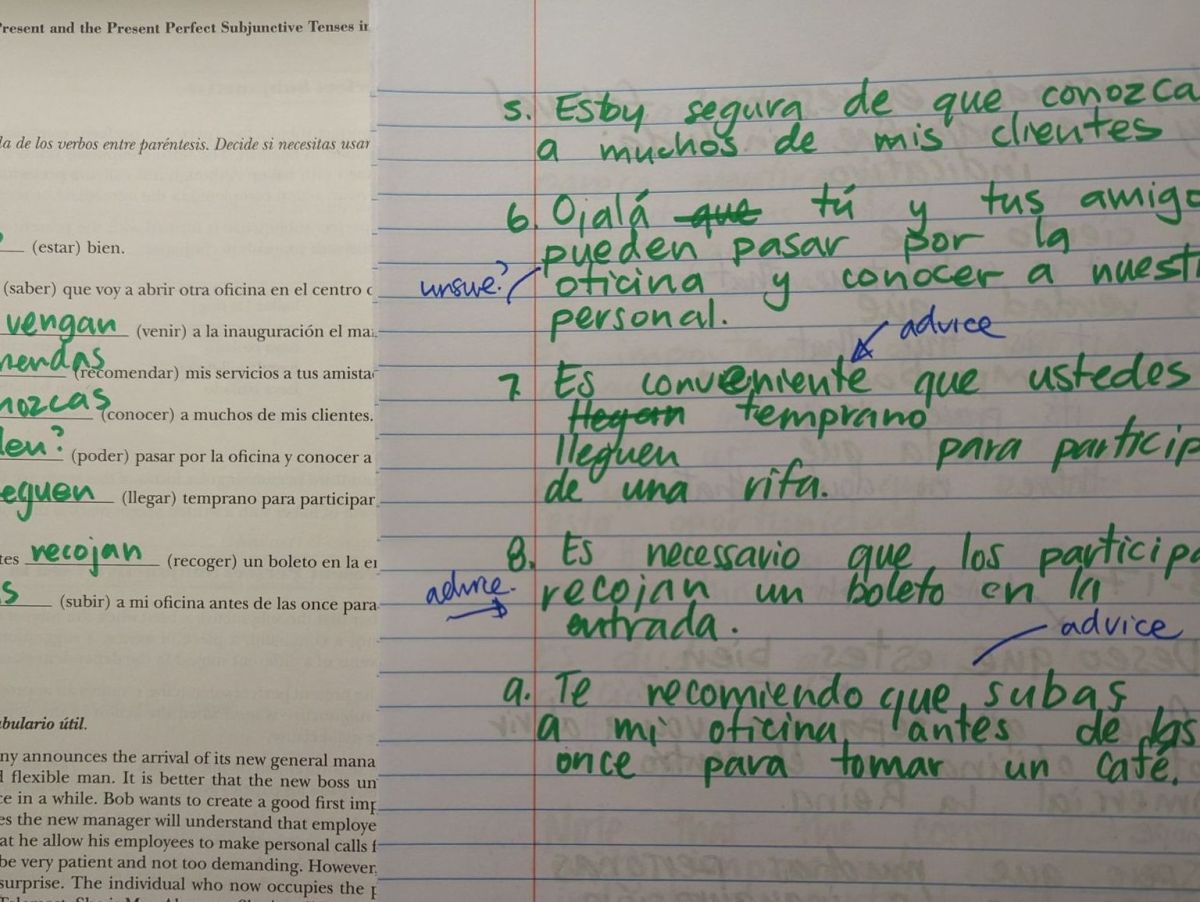 Present and the Present Perfect Subjunctive Tenses in
la de los verbos entre paréntesis. Decide si necesitas usar
(estar) bien.
(saber) que voy a abrir otra oficina en el centro
vengan (venir) a la inauguración el
mendas
(recomendar) mis servicios a tus
nozcas
(conocer) a muchos de mis clientes.
den?
(poder) pasar por la oficina y conocer a
leguen (llegar) temprano para participar
tes recojan (recoger) un boleto en la
s
(subir) a mi oficina antes de las once para
abulario útil.
ny announces the arrival of its new general mana
d flexible man. It is better that the new boss un
ce in a while. Bob wants to create a good first imp
es the new manager will understand that employe
at he allow his employees to make personal calls f
be very patient and not too demanding. However,
surprise. The individual who now occupies the p
5. Estoy segura de que conozca
a muchos de mis clientes
6. Ojalá que tú y tus amigo
pueden pasar por la
unsure? oficina y conocer a nuest
personal.
advice
7. Es conveniente que ustedes
llegan temprano
lleguen para particip
de una rifa.
8. Es necessario que los participa
advice. recojan un boleto en la
entrada.
advice
9. Te recomiendo que subas
a mi oficina antes de las
once para tomar un café.